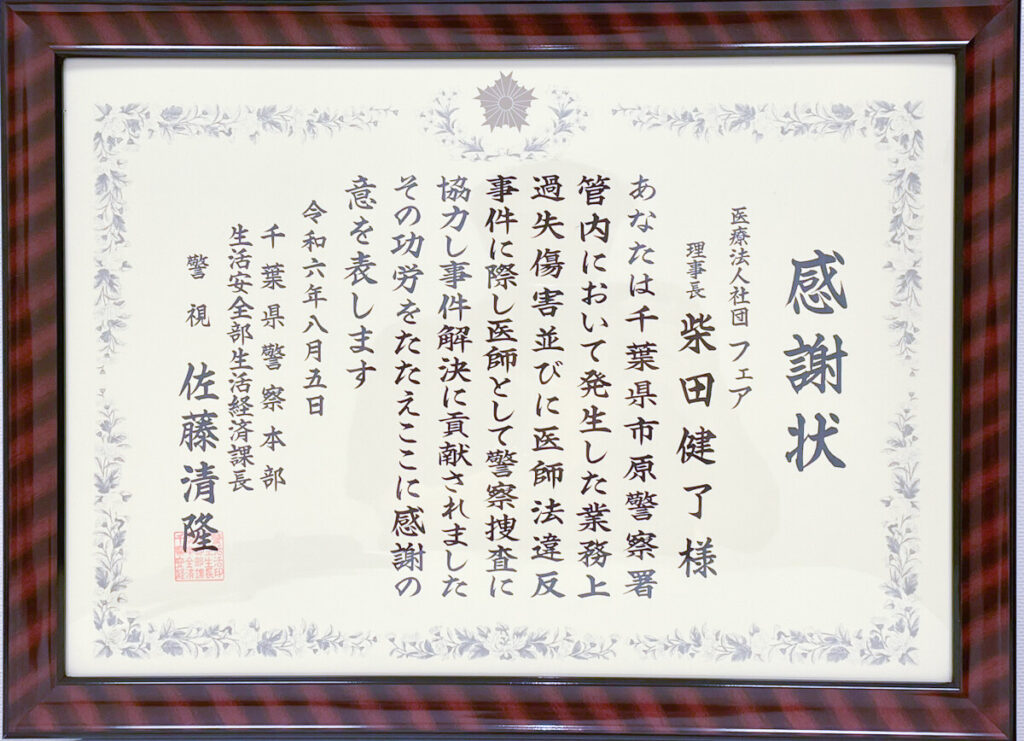 感謝状
医療法人社団 フェア
理事長 柴田健了様
あなたは千葉県市原警察署
管内において発生した業務上
過失傷害並びに医師法違反
事件に際し医師として警察捜査に
協力し事件解決に貢献されました
その功労をたたえここに感謝の
意を表します
令和六年八月五日
千葉県警察本部
生活安全部生活経済課長
警視 佐藤清隆